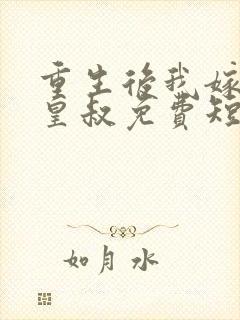 重生後我嫁
皇叔免費短
如月水